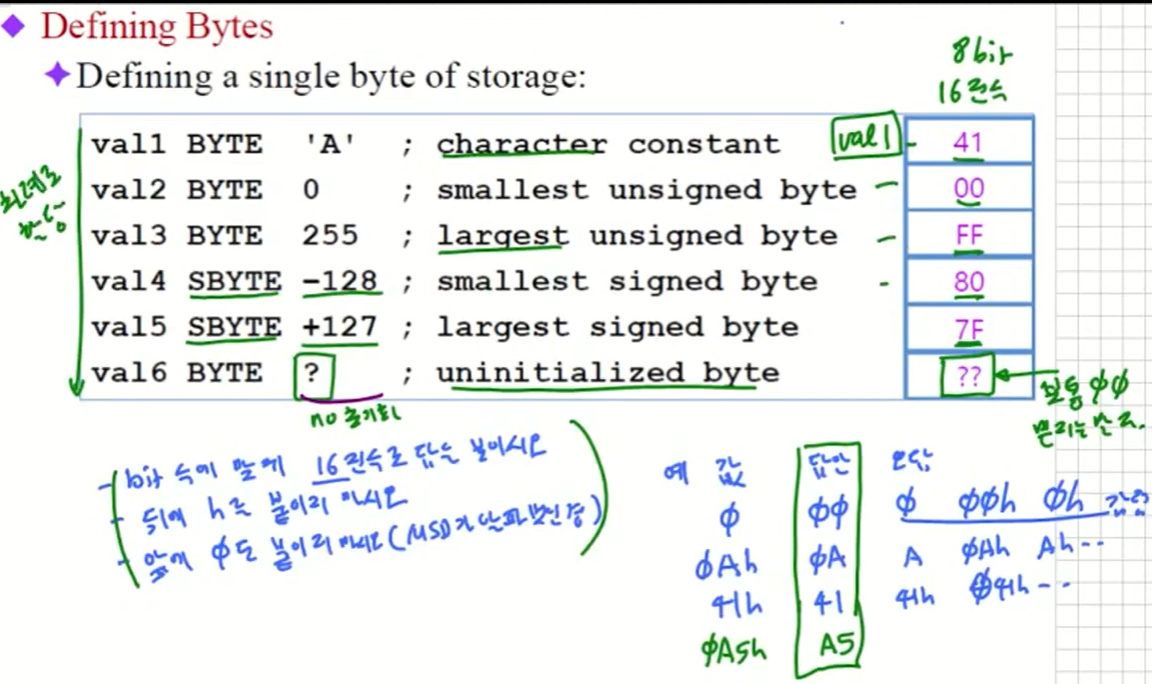 Defining Bytes
Defining a single byte of storage:
8 bit
16진수
val1 BYTE 'A' ; character constant val1 41
val2 BYTE 0 ; smallest unsigned byte 00
val3 BYTE 255 ; largest unsigned byte FF
val4 SBYTE -128 ; smallest signed byte 80
val5 SBYTE +127 ; largest signed byte 7F
val6 BYTE ? ; uninitialized byte ??
no 초기화
보통 φφ
- bit 수에 맞게 16진수로 답을 붙이시오
- 뒤에 h를 붙이지 마시오
- 앞에 φ도 붙이지 마시오 (MSD가
예 값 답안 오답
φ φφ φ φφh φh
φAh φA A φAh Ah--
41h 41 41h φ41h--
φA5h A5